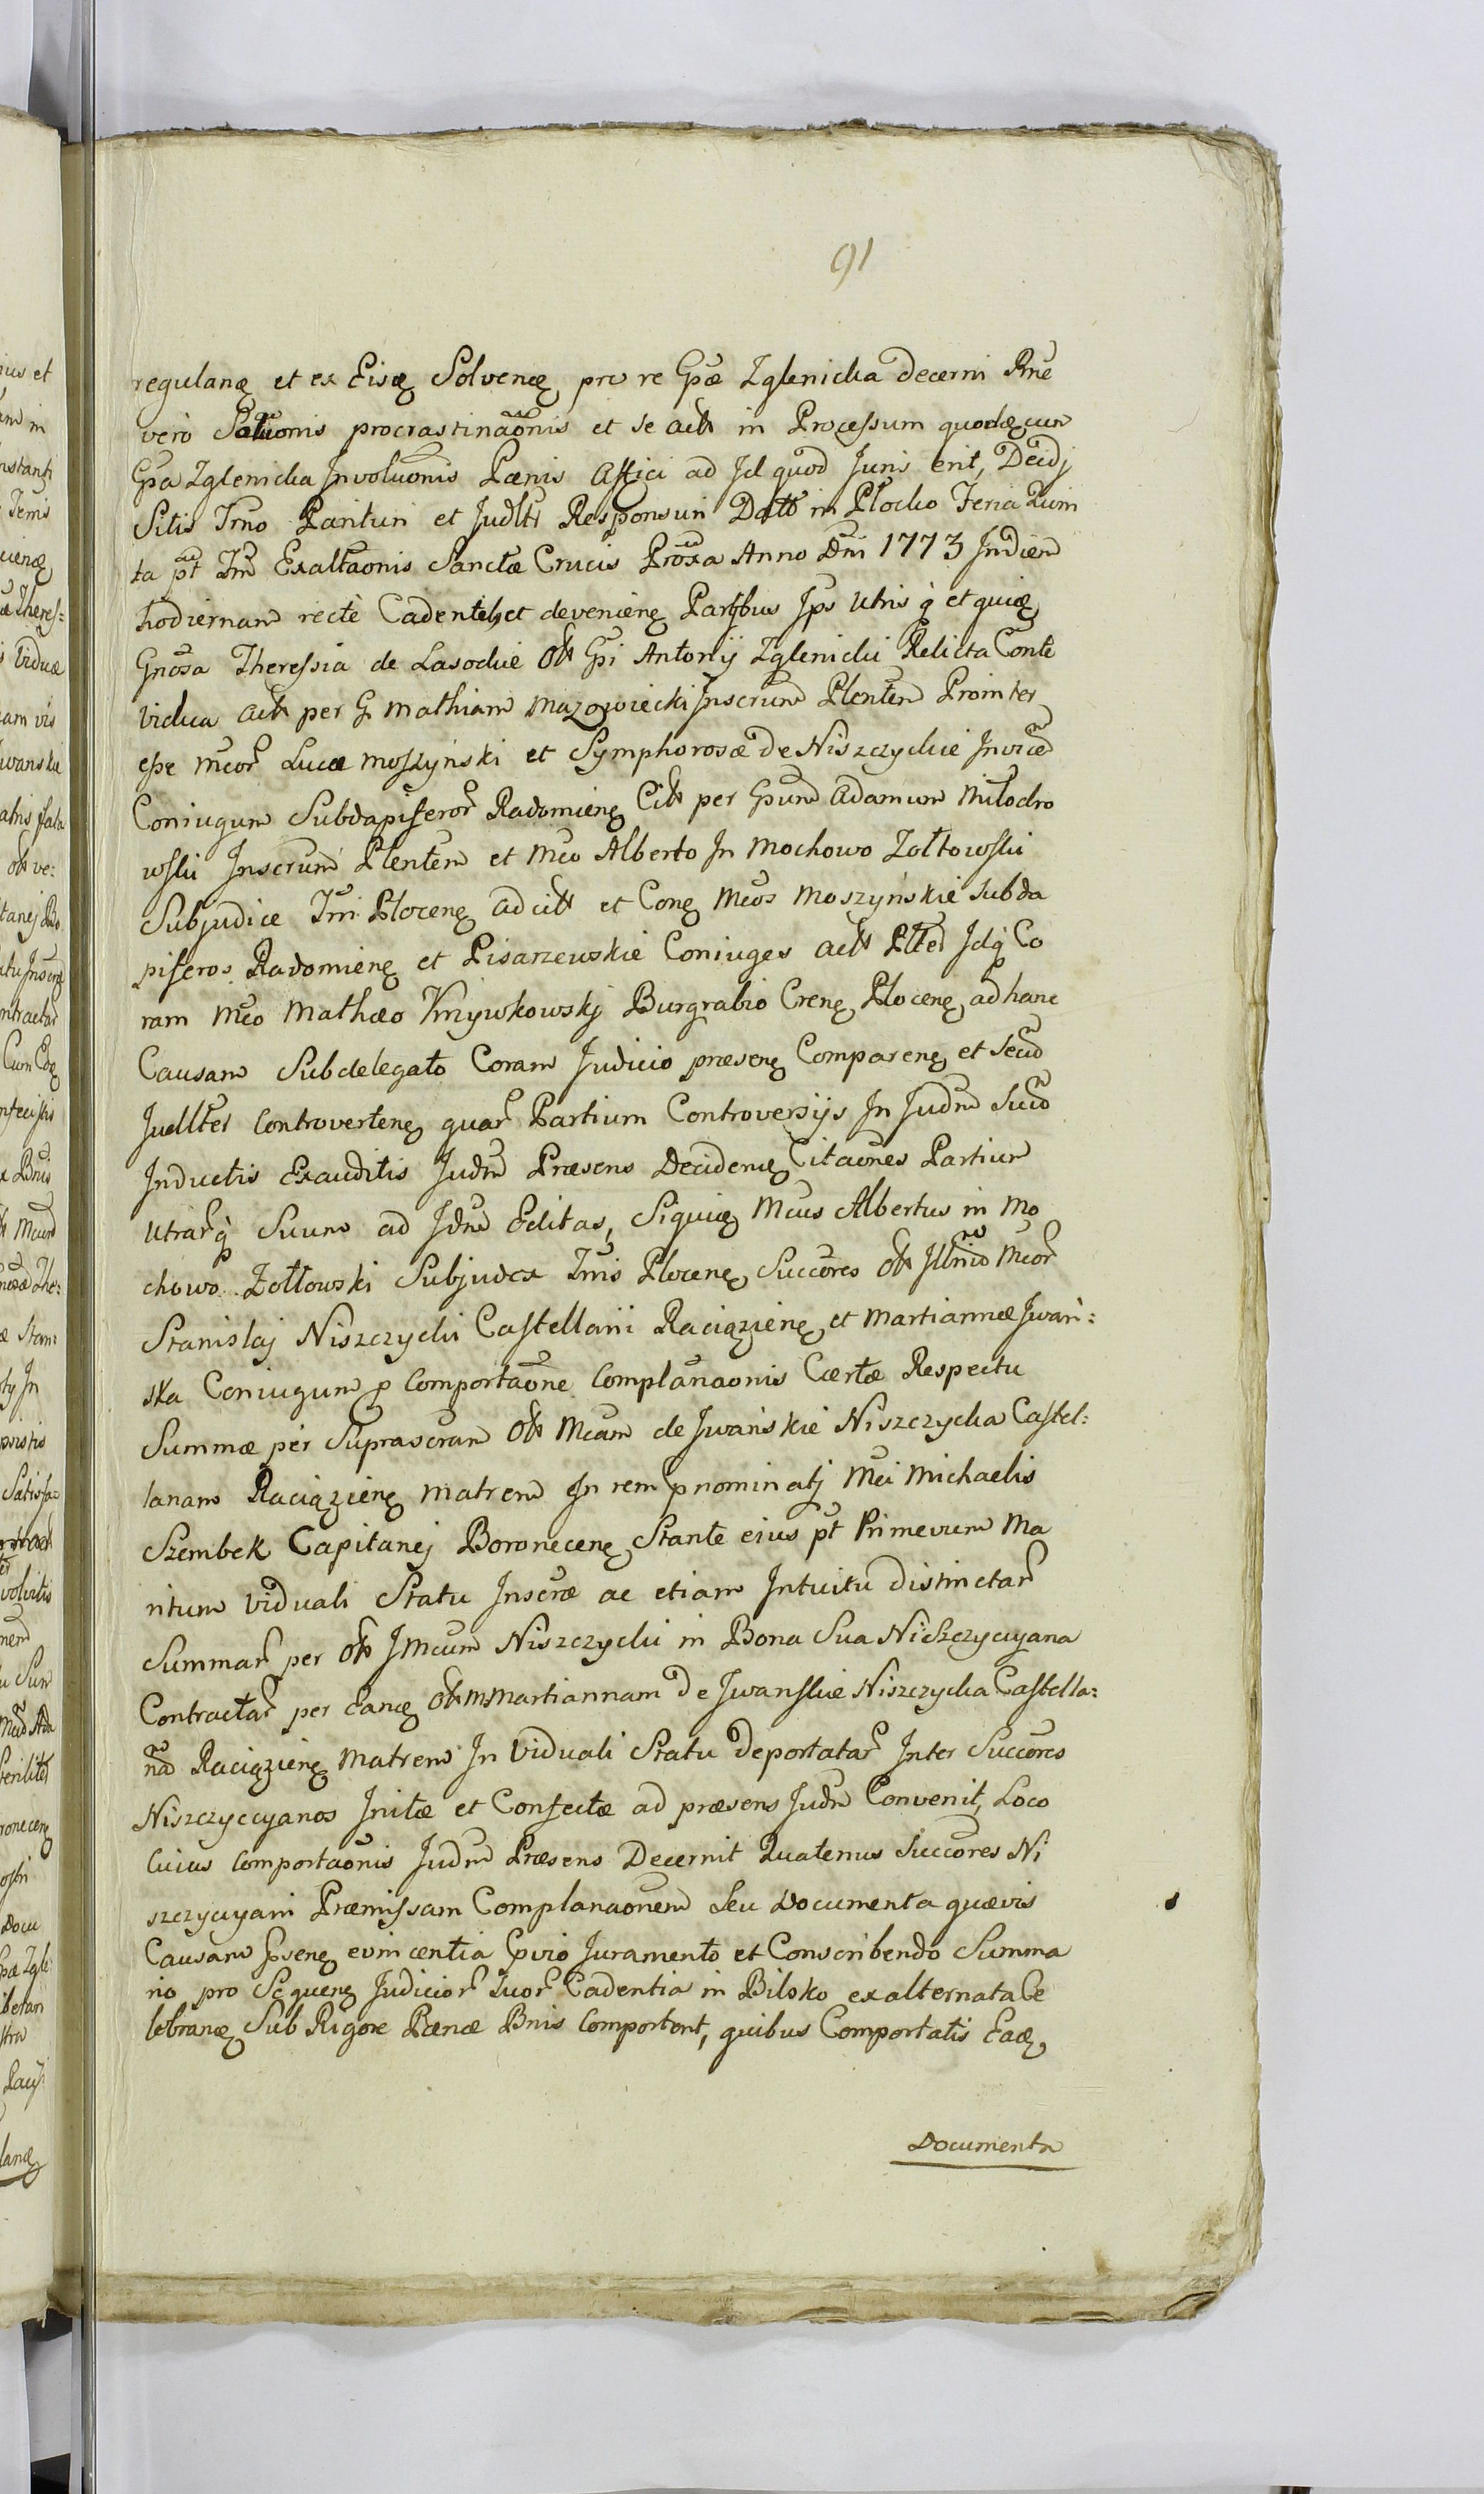 91
regulanę et ex Eisę Solvenę pro re Gpæ Zglenicka decerni Rñe
verò Soluõnis procrastinaõnis et se actt in Processum quodęcun
Gpa Zglenicka Involuonis Pænis affici ad Jd quod Juris erit, Decidj
Sitis Trno Parituri et Judltr Responsuri Datt in Płocko Feria Quin
ta pt Fm Exaltaonis Sanctæ Crucis Proxa Anno Dni 1773 Jndiem
hodiernam rectè Cadenteh et devenienę Partbus Jps Utris q et quię
Gnosa Theressia de Lasockie Ott Gpi Antonij Zglenicki Relicta Conte
vidua actt per G. Mathiam Mazowiecki Jnscrum Plentem Prointer
esse Mcor Lucæ Moszyński et Symphorosæ de Niszczyckie Jnvicem
Coniugum Subdapiferor Radomienę Citt per Gpum Adamum Miłodro
wski Jnscrum Plentem et Mco Alberto Jn Mochowo Zołtowski
Subjudice Tmi Płocenę adcitt et Conę Mcos Moszyńskie Subda
piferos Radomienę et Pisarzewskie Coniuges actt Pltes Jdq Co
ram Mco Mathæo Kmywkowskj Burgrabio Crenę Płocenę ad hanc
Causam Subdelegato Coram Judicio præsenę Comparenę et Secum
Judlter Controvertenę quar Partium Controversijs Jn Judm Suum
Jnductis Exauditis Judm Præsens Decidenę Citaones Partium
utrarq Suum ad Jdm Editas, Siquię Mcus Albertus in Mo
chowo Zołtowski Subjudex Tmis Płocenę Succores Ott Jllmo Mcor
Stanislaj Niszczycki Castellani Raciążienę et Martiannæ Jwań:
ska Coniugum p Comportaone Complanaonis Certæ Respectu
Summæ per Suprascram Ott Mcam de Jwańskie Niszczycka Castel:
lanam Raciążienę Matrem Jn rem pnominatj Mci Michaelis
Szembek Capitanej Boronecenę Stante eius pt Primevum Ma
ritum viduali Statu Jnscræ ac etiam Jntuitu distinctar
Summar per Ott JMcum Niszczycki in Bona Sua Niszczycyana
Contractar per Eanę Ott M Martiannam de Jwanskie Niszczycka Castella:
nam Raciążienę Matrem Jn Viduali Statu deportatar Jnter Succores
Niszczyccyanos Jnitæ et Confectæ ad præsens Judm Convenit, Loco
Cuius Comportaonis Judm Præsens Decernit Quatenus Succores Ni
szczycyani Præmissam Complanaonem Seu Documenta quævis
Causam psenę evincentia pvio Juramento et Conscribendo Summa
rio pro Sequenę Judicior Suor Cadentia in Bilsko exalternata Ce
lebranę Sub Rigore Pænæ Bnis Comportent, quibus Comportatis Eaę
Documenta